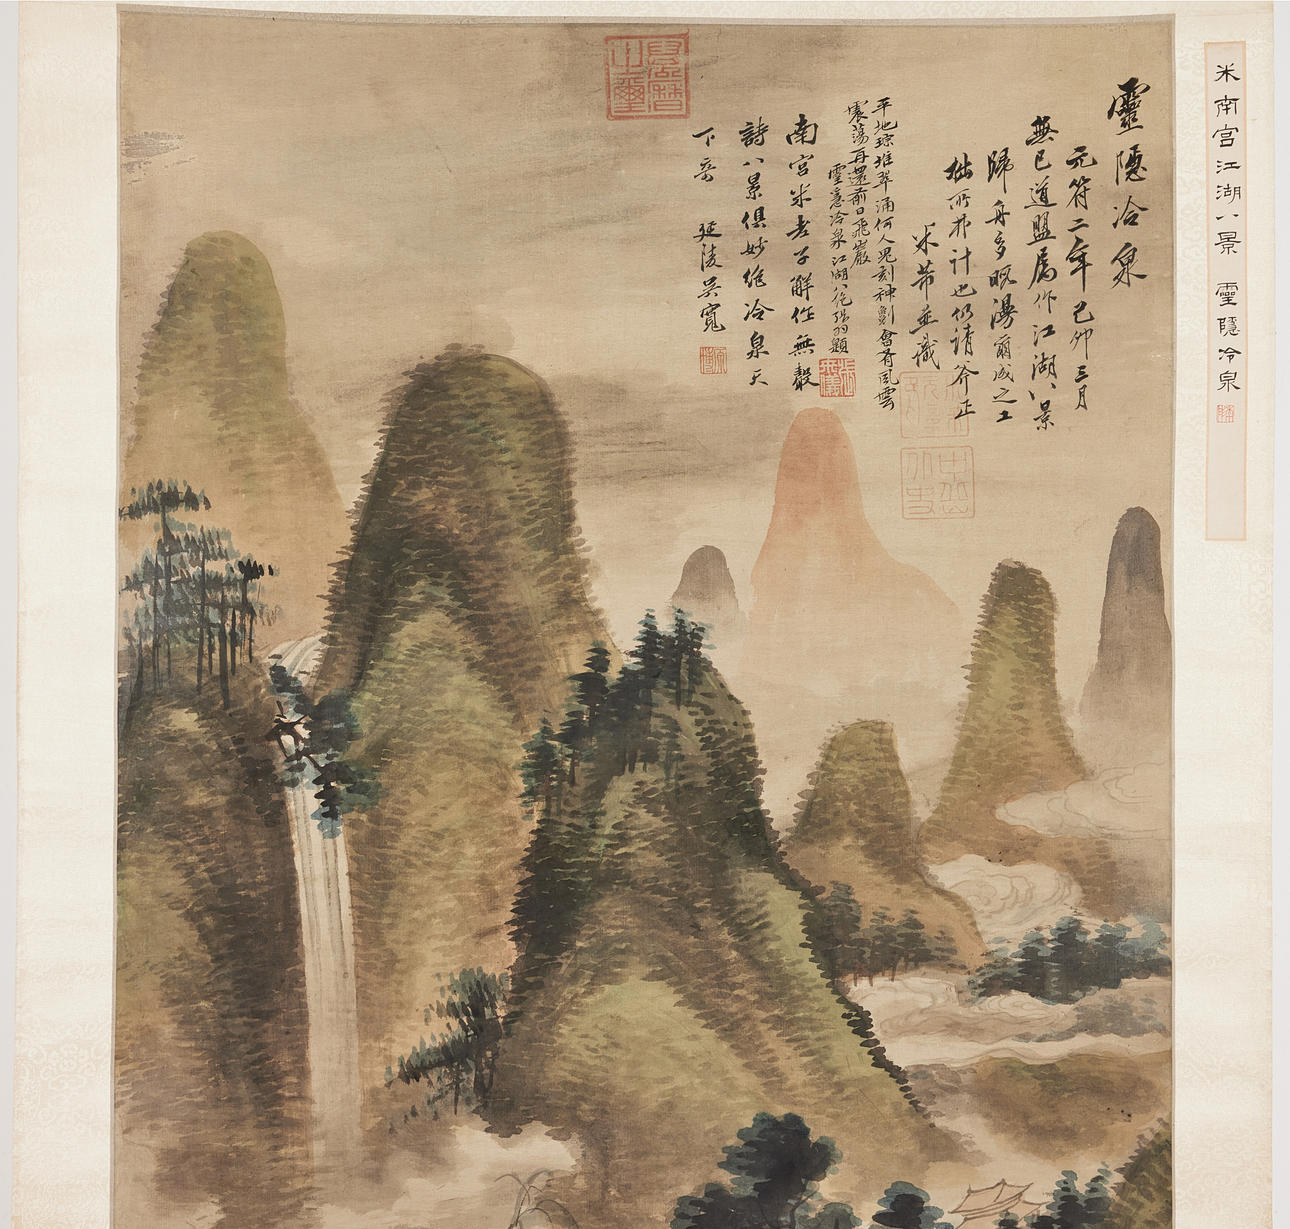 米南宮江湖八景 靈隱冷泉
靈隱冷泉
元符二年己卯三月
無已道盟属作江湖八景
歸舟多暇漫爾成之工
拙所弗計也仍請斧正
米芾並識
平地琮堆翠涌何人鬼刻神劖會有風雲
震蕩再還前日飛巖
靈隱冷泉 江湖八 張羽題
南宮米老子解作無聲
詩八景俱妙絶冷泉天
下奇 延陵吳寬